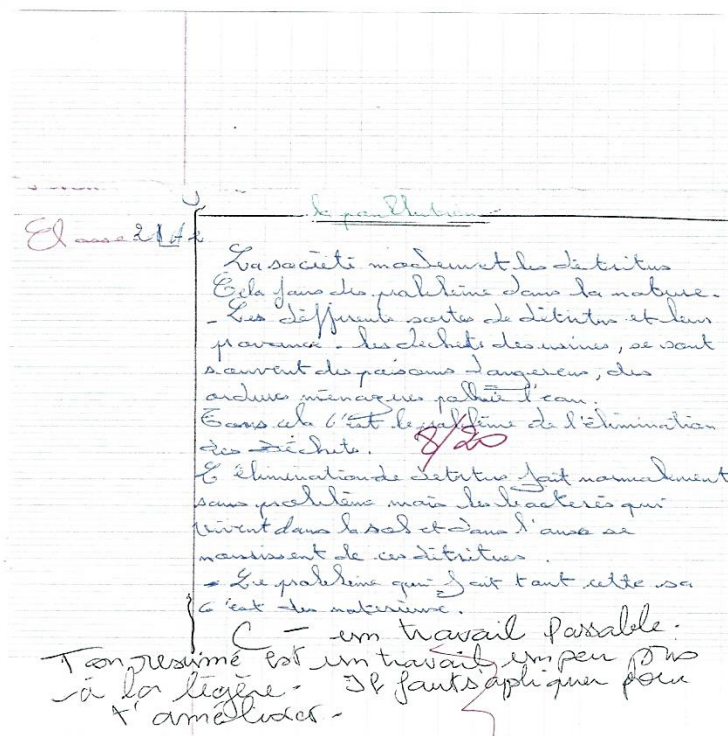 la poublution
Classe 2
La société moderne et les détritus
Cela fans des problème dans la nature.
- Les différente sortes de détritus et leur
provenance. les déchets des usines, se sont
souvent des poisons dangereus, des
ordures ménagères pollue l'eau.
Tous cela c'est le problème de l'élimination
des déchets. 8/20
L'élimination de detritus fait normalement
sans problème mais les bacteries qui
vivent dans le sol et dans l'
nourissent de ces détritus.
- Le problème qui fait tout cette sa
c'est des
C - un travail passable.
Ton resumé est un travail un peu pris
à la légère. Il faut s'apliquer pour
t'améliorer.